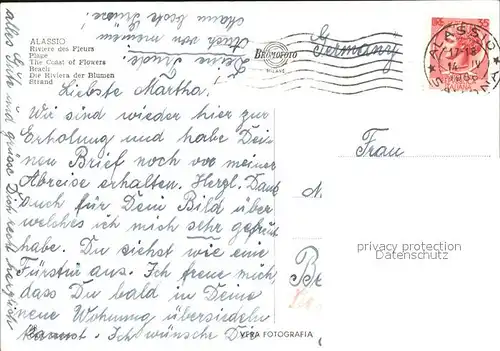 ALASSIO
Riviera des Fleurs
Plage
The Coast of Flowers
Beach
Die Riviera der Blumen
Strand
BROMOFOTO
MILANO
Germany
ALASSIO
17-18
14. IV
Liebste Martha!
Wir sind wieder hier zur
Erholung und habe Dei-
nen Brief noch vor meiner
Abreise erhalten. Herzl. Dank
auch für Dein Bild über
welches ich mich sehr gefreut
habe. Du siehst wie eine
Fürstin aus. Ich freue mich,
dass Du bald in Deine
neue Wohnung übersiedeln
kannst. Ich wünsche Dir
alles Gute und grüsse Dich recht herzlich
Deine Trude!
Auch von meinem
Mann beste Grüsse!
Frau
privacy protection
Datenschutz
VERA FOTOGRAFIA